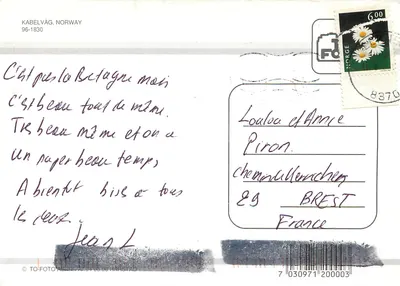 KABELVÅG, NORWAY
96-1830
C'est pas la Bretagne mais
c'est beau tout de même.
Très beau même et on a
un super beau temps,
A bientôt bise à tous
les deux.
Jean L
© TO-FOTO
6,00
NORGE
8370
Loulou et Annie
Piron.
29 BREST
France
7 030971 200003